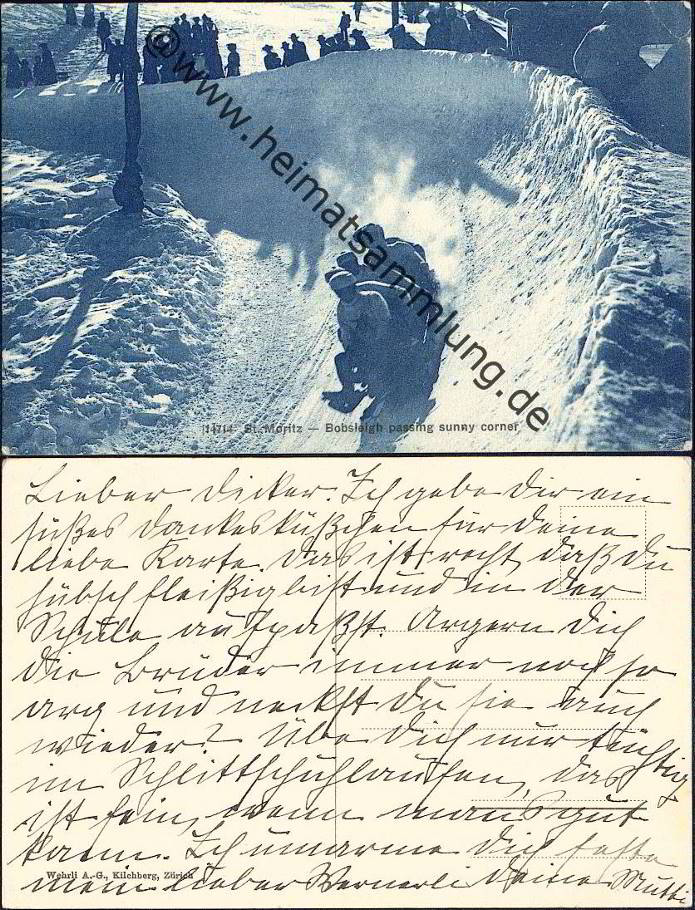 @www.heimatsammlung.de
14714 St. Moritz — Bobsleigh passing sunny corner
Lieber Dicker. Ich gebe Dir ein
süßes Dankesküßchen für Deine
liebe Karte. Das ist recht, daß Du
hübsch fleißig bist und in der
Schule aufpaßst. Ärgern Dich
die Brüder immer noch so
arg und neckst Du sie auch
wieder? Übe Dich nur tüchtig
im Schlittschuhlaufen, das
ist fein, wenn man's gut
kann. Ich umarme Dich feste
mein lieber Wernerli Deine Mutti
Wehrli A.-G., Kilchberg, Zürich